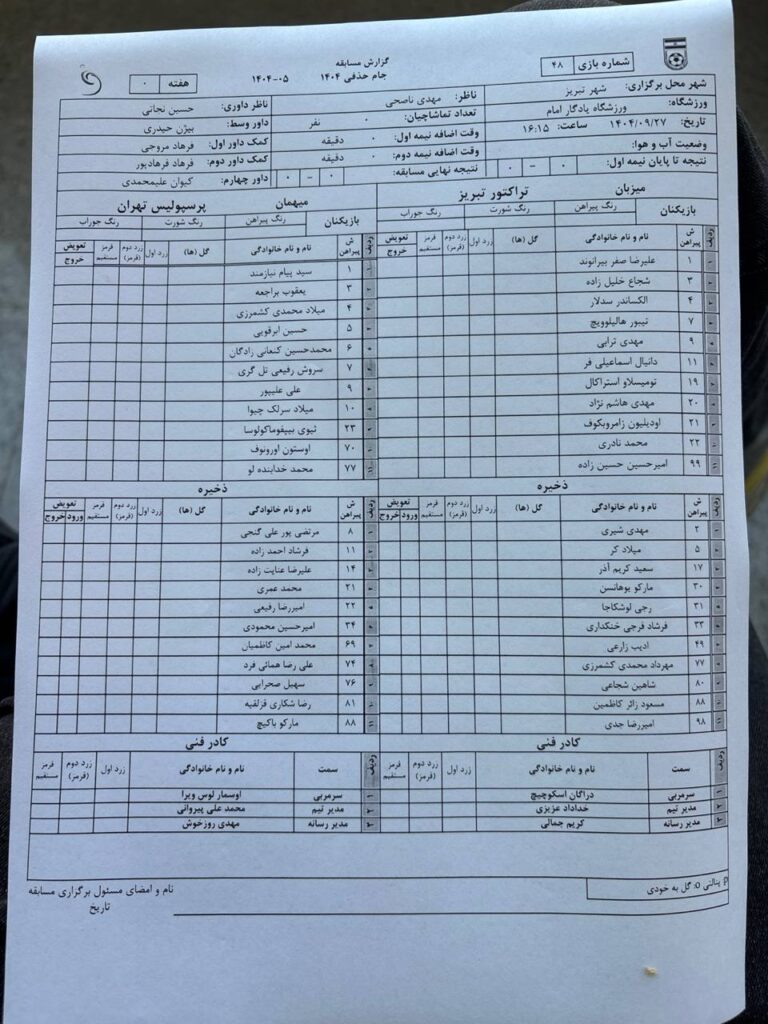 گزارش مسابقه
جام حذفی ۱۴۰۴ ۱۴۰۴-۰۵
شماره بازی ۴۸
هفته ۰
شهر محل برگزاری: شهر تبریز
ورزشگاه: ورزشگاه یادگار امام
تاریخ: ۱۴۰۴/۰۹/۲۷ ساعت: ۱۶:۱۵
وضعیت آب و هوا:
نتیجه تا پایان نیمه اول: ۰ - ۰
ناظر: مهدی ناصحی
تعداد تماشاچیان: ۰ نفر
وقت اضافه نیمه اول: ۰ دقیقه
وقت اضافه نیمه دوم: ۰ دقیقه
نتیجه نهایی مسابقه: ۰ - ۰
ناظر داوری: حسین نجاتی
داور وسط: بیژن حیدری
کمک داور اول: فرهاد مروجی
کمک داور دوم: فرهاد فرهادپور
داور چهارم: کیوان علیمحمدی
میزبان تراکتور تبریز
بازیکنان رنگ پیراهن رنگ شورت رنگ جوراب
ردیف ش پیراهن نام و نام خانوادگی گل (ها) زرد اول زرد دوم (قرمز) قرمز مستقیم تعویض خروج
۱ ۱ علیرضا صفر بیرانوند
۲ ۳ شجاع خلیل زاده
۳ ۴ الکساندر سدلار
۴ ۷ تیبور هالیلوویچ
۵ ۹ مهدی ترابی
۶ ۱۱ دانیال اسماعیلی فر
۷ ۱۹ تومیسلاو استراکال
۸ ۲۰ مهدی هاشم نژاد
۹ ۲۱ اودیلیون زامروبکوف
۱۰ ۲۲ محمد نادری
۱۱ ۹۹ امیرحسین حسین زاده
ذخیره
ردیف ش پیراهن نام و نام خانوادگی گل (ها) زرد اول زرد دوم (قرمز) قرمز مستقیم تعویض ورود خروج
۱ ۲ مهدی شیری
۲ ۵ میلاد کر
۳ ۱۷ سعید کریم آذر
۴ ۳۰ مارکو یوهانسن
۵ ۳۱ رجی لوشکاجا
۶ ۳۳ فرشاد فرجی خنکداری
۷ ۴۹ ادیب زارعی
۸ ۷۷ مهرداد محمدی کشمرزی
۹ ۸۰ شاهین شجاعی
۱۰ ۸۸ مسعود زائر کاظمین
۱۱ ۹۸ امیررضا جدی
کادر فنی
ردیف سمت نام و نام خانوادگی زرد اول زرد دوم (قرمز) قرمز مستقیم
۱ سرمربی دراگان اسکوچیچ
۲ مدیر تیم خداداد عزیزی
۳ مدیر رسانه کریم جمالی
میهمان پرسپولیس تهران
بازیکنان رنگ پیراهن رنگ شورت رنگ جوراب
ردیف ش پیراهن نام و نام خانوادگی گل (ها) زرد اول زرد دوم (قرمز) قرمز مستقیم تعویض خروج
۱ ۱ سید پیام نیازمند
۲ ۳ یعقوب براجعه
۳ ۴ میلاد محمدی کشمرزی
۴ ۵ حسین ابرقویی
۵ ۶ محمدحسین کنعانی زادگان
۶ ۷ سروش رفیعی تل گری
۷ ۹ علی علیپور
۸ ۱۰ میلاد سرلک چیوا
۹ ۲۳ ثیوی بیفوماکولوسا
۱۰ ۷۰ اوستون اورونوف
۱۱ ۷۷ محمد خدابنده لو
ذخیره
ردیف ش پیراهن نام و نام خانوادگی گل (ها) زرد اول زرد دوم (قرمز) قرمز مستقیم تعویض ورود خروج
۱ ۸ مرتضی پور علی گنجی
۲ ۱۱ فرشاد احمد زاده
۳ ۱۴ علیرضا عنایت زاده
۴ ۲۱ محمد عمری
۵ ۲۲ امیررضا رفیعی
۶ ۳۴ امیرحسین محمودی
۷ ۶۹ محمد امین کاظمیان
۸ ۷۴ علی رضا همائی فرد
۹ ۷۶ سهیل صحرایی
۱۰ ۸۱ رضا شکاری قزلقیه
۱۱ ۸۸ مارکو باکیچ
کادر فنی
ردیف سمت نام و نام خانوادگی زرد اول زرد دوم (قرمز) قرمز مستقیم
۱ سرمربی اوسمار لوس ویرا
۲ مدیر تیم محمد علی پیروانی
۳ مدیر رسانه مهدی روزخوش
P پنالتی O: گل به خودی
نام و امضای مسئول برگزاری مسابقه
تاریخ